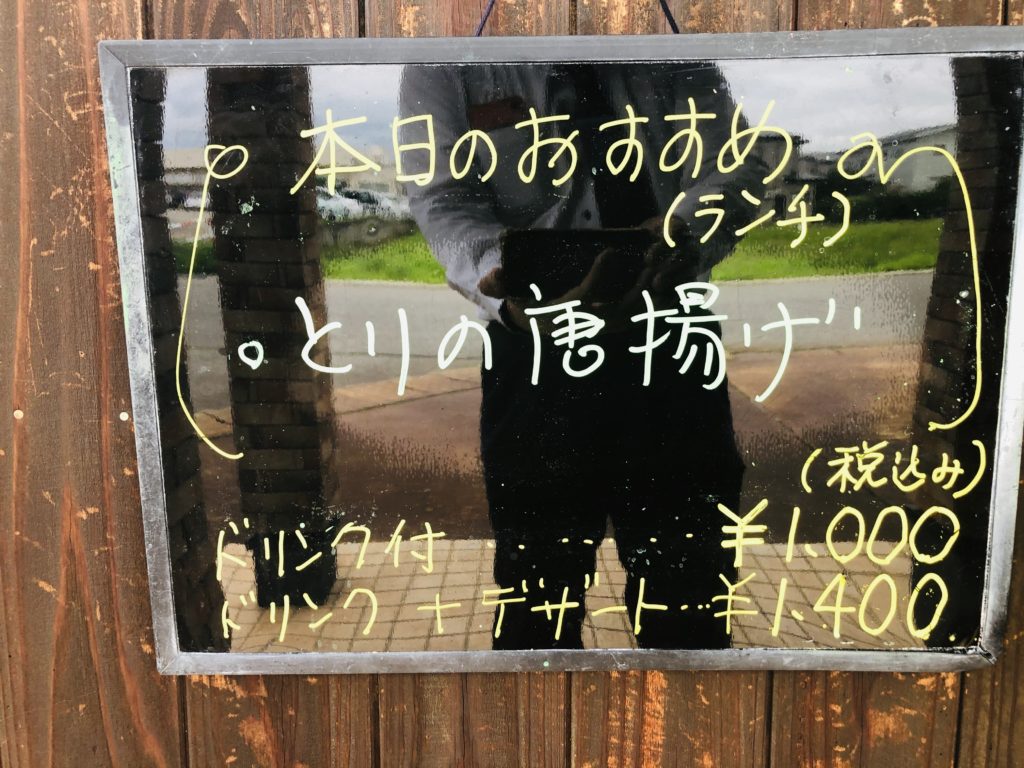 本日のおすすめ
(ランチ)
○とりの唐揚げ
(税込み)
ドリンク付 ・・・・・・ ¥1.000
ドリンク + デザート…¥1.400.